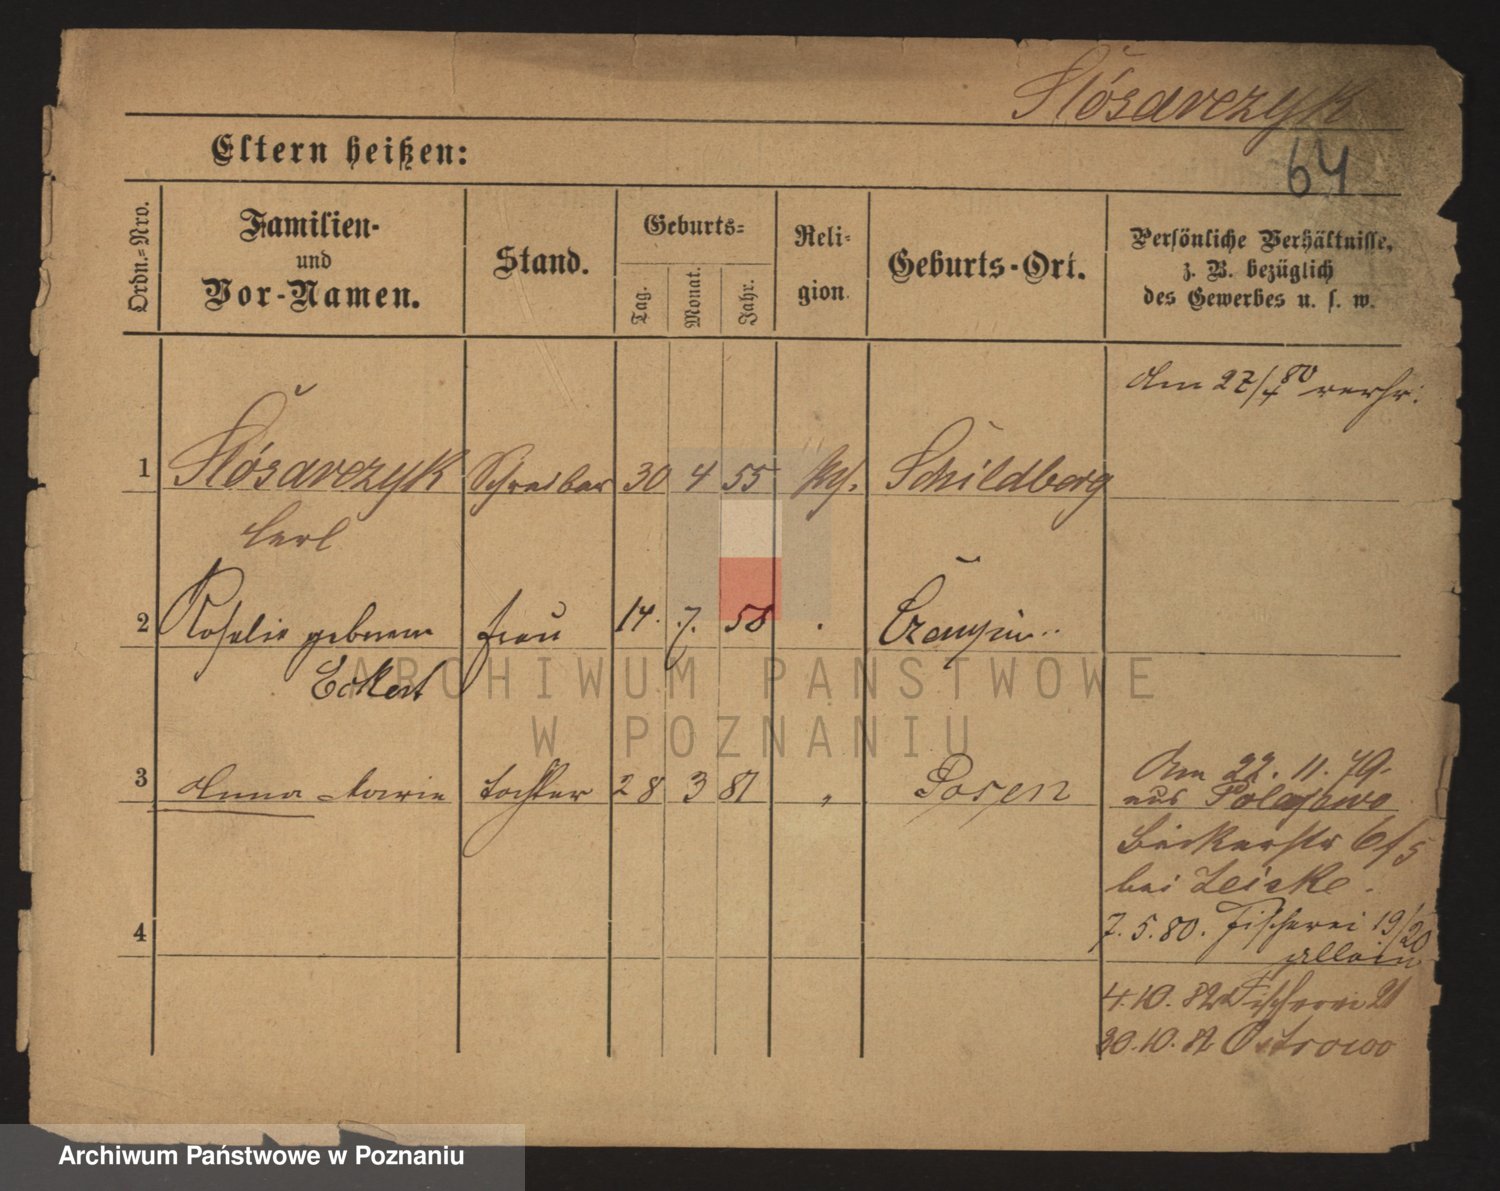 Ślósarczyk
64
Eltern heißen:
Ordn.-Nro.
Familien-
und
Vor-Namen.
Stand.
Geburts-
Tag.
Monat.
Jahr.
Reli-
gion
Geburts-Ort.
Persönliche Verhältnisse,
z. B. bezüglich
des Gewerbes u. s. w.
Am 27/4 80 verhr.
1 Ślósarczyk Schreiber 30 4 55 kth. Schildberg
Carl
2 Rosalie geborene Frau 14. 7. 58 Czempin
Eckert
3 Anna Marie Tochter 28 3 81 " Posen
Am 22. 11. 79.
aus Polajewo
Bäckerstr 6/5
bei Zeiske.
7. 5. 80. Fischerei 19/20
allein
4
4. 10. 82 Fischerei 21
30. 10. 82 Ostrowo
ARCHIWUM PAŃSTWOWE
W POZNANIU
Archiwum Państwowe w Poznaniu